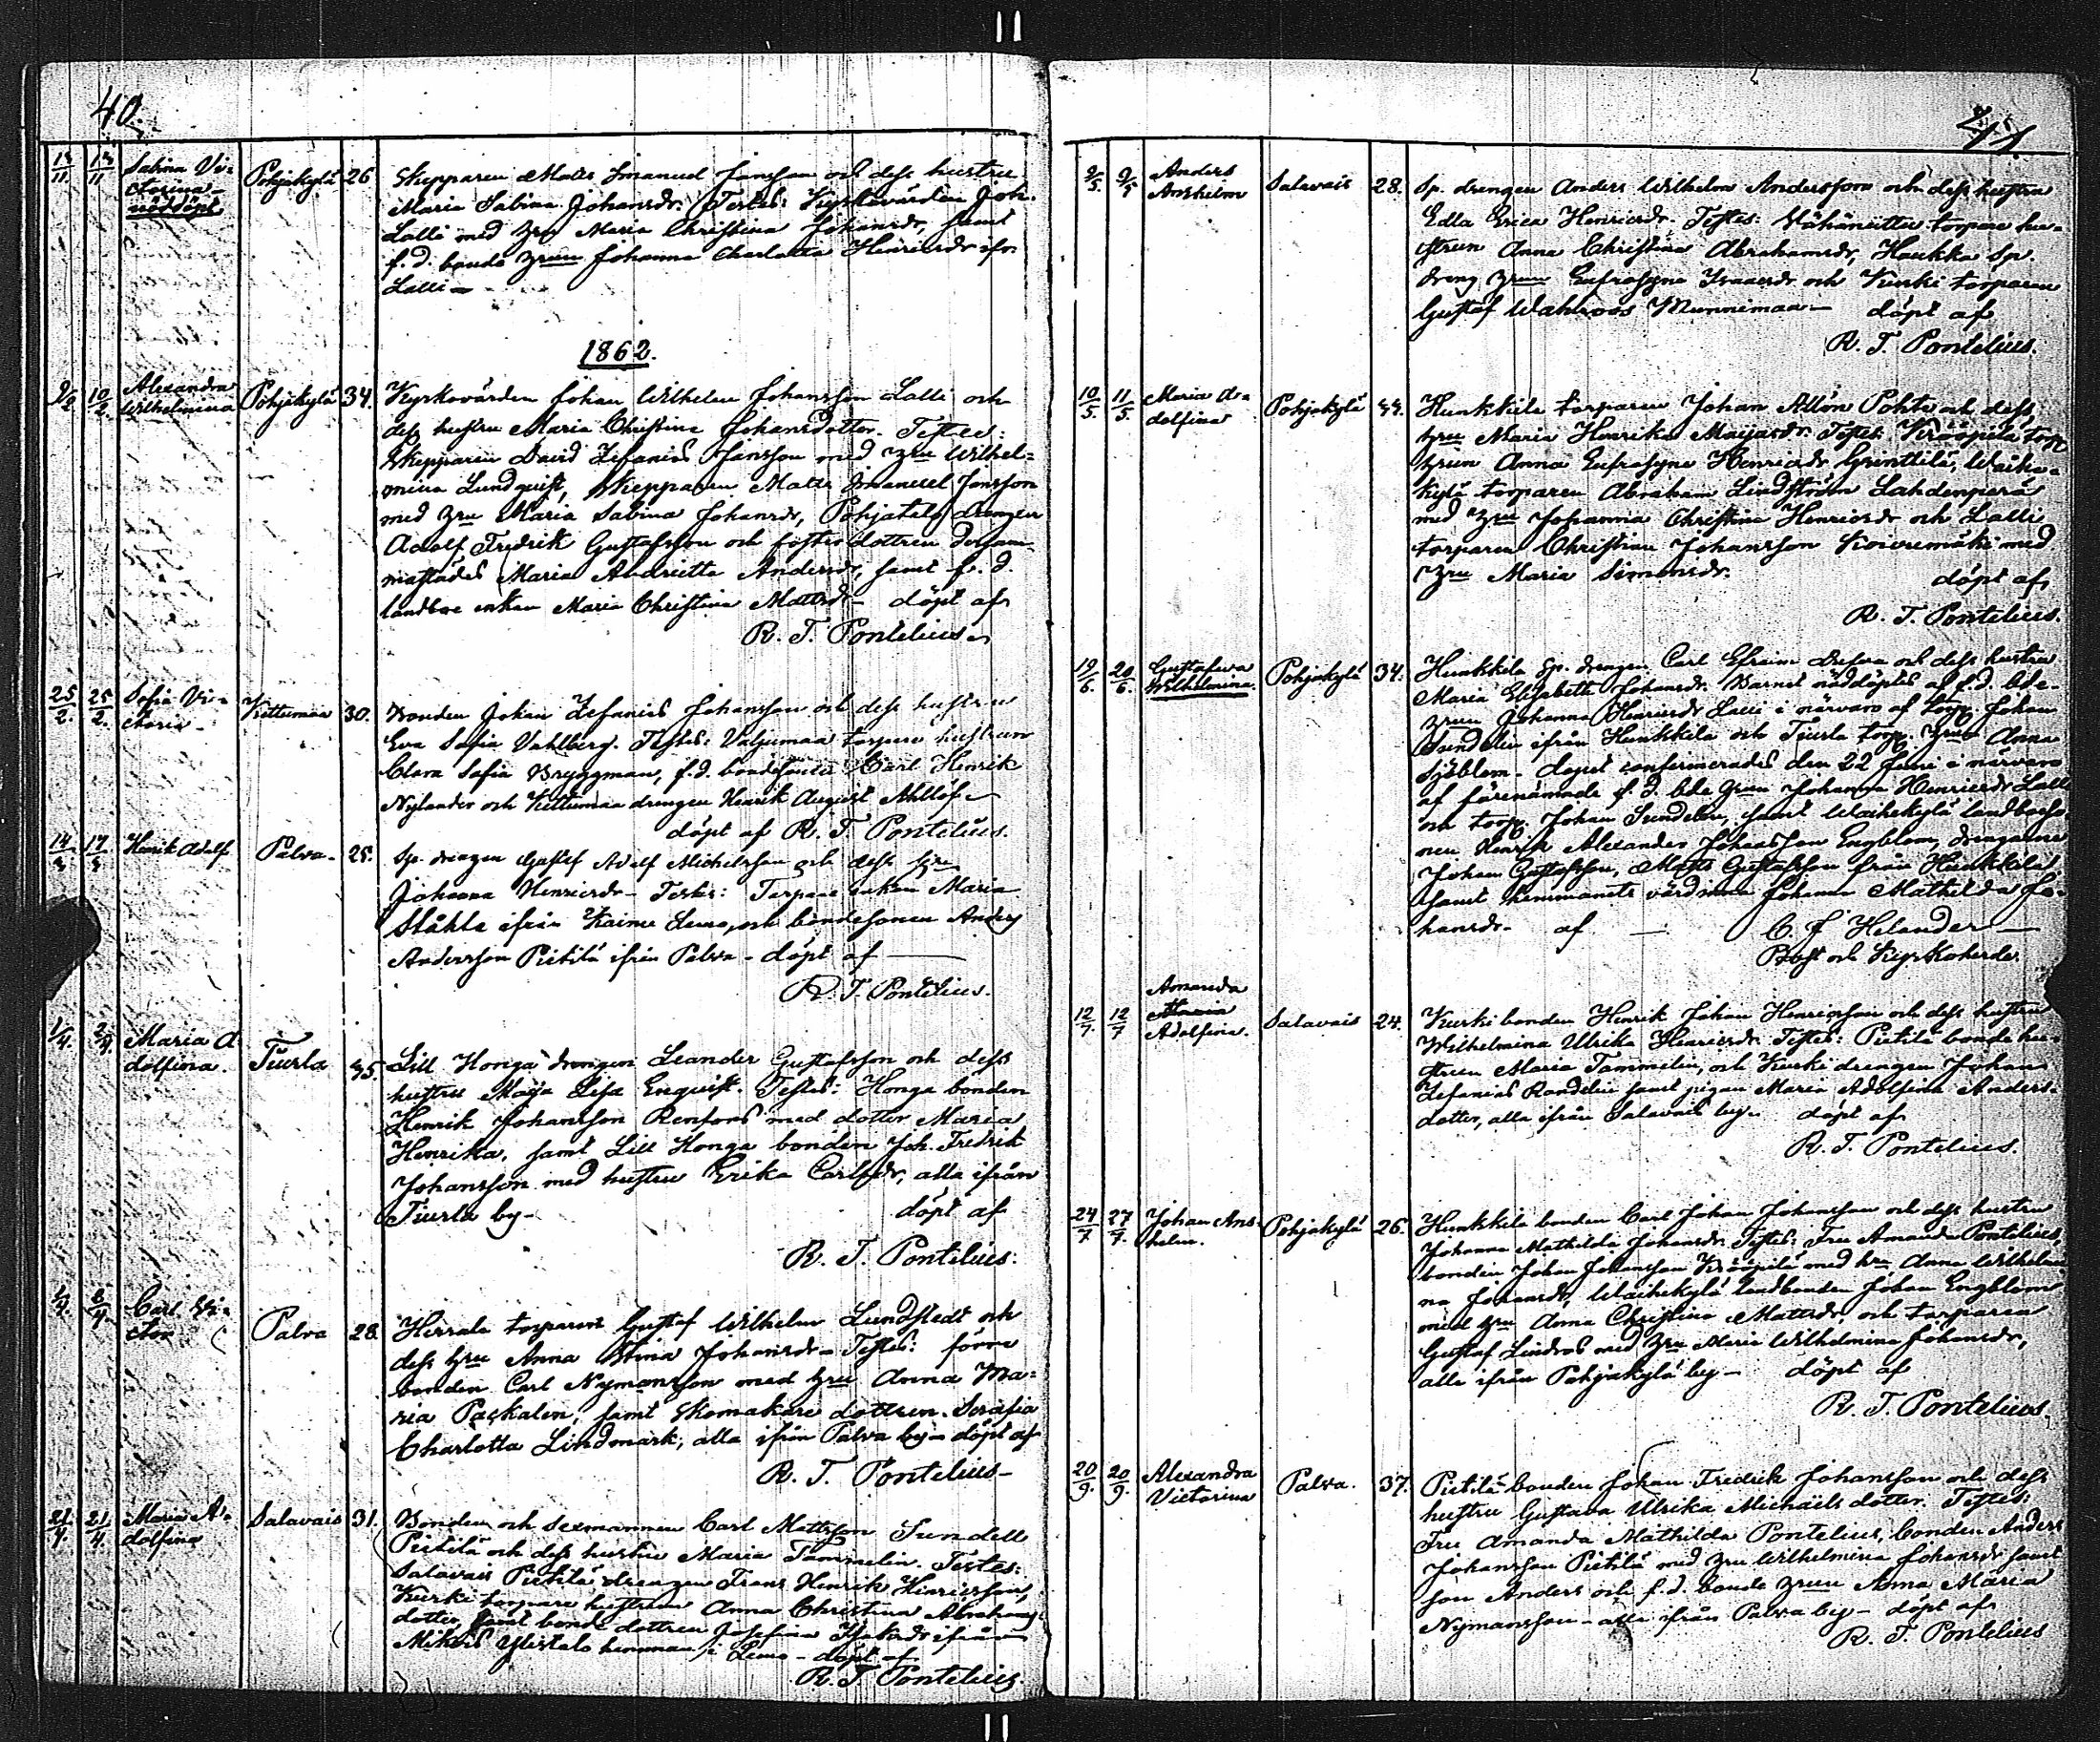 40.
13/11 13/11 Sabina Vi=
ctorina
nöddöpt
Pohjakylä 26
Skepparen Matts Imanuel Jansson och dess hustru
Maria Sabina Johansdr. Testes: Kyrkovärden Joh.
Lalli med hru Maria Christina Johansdr, samt
f. d. bonde hrun Johanna Charlotta Henricsdr ifr.
Lalli –
1862.
9/2 10/2 Alexandra
Wilhelmina
Pohjakylä 34.
Kyrkovärden Johan Wilhelm Johansson Lalli och
dess hustru Maria Christina Johansdotter. Testes:
Skepparen David Zefanias Jansson med hru Wilhel=
mina Lundquist, Skepparen Matts Imanuel Jansson
med hru Maria Sabina Johansdr, Pohjatalo drengen
Adolf Fredrik Gustafsson och foster dottren dersam=
mastädes Maria Andrietta Andersdr, samt f. d.
landboe enkan Maria Christina Mattsdr – döpt af
R. T. Pontelius
25/2. 25/2. Sofia Vi=
ctoria
Kettumaa 30.
Bonden Johan Zefanias Johansson och dess hustru
Eva Sofia Vahlberg. Testes: Valjumaa torpare hustrun
Clara Sofia Bryggman, f. d. bondesonen Carl Henrik
Nylander och Kettumaa drengen Henrik August Ahllöf –
döpt af R. T. Pontelius.
14/3 17/3 Henrik Adolf Palva 25.
Sp. drengen Gustaf Adolf Michelsson och dess hru
Johanna Henricsdr – Testes: Torpare enkan Maria
Ståhle ifrån Kaines Lemo, och bondesonen Anders
Andersson Pietilä ifrån Palva – döpt af
R. T. Pontelius.
1/4. 2/4. Maria A=
dolfina.
Tiurla 35.
Lill Honga drengen Leander Gustafsson och dess
hustru Maja Lisa Enquist. Testes: Honga bonden
Henrik Johansson Renfors med dotter Maria
Henrika, samt Lill Honga bonden Joh. Fredrik
Johansson med hustru Erika Carlsdr, alla ifrån
Tiurla by – döpt af
R. T. Pontelius.
Carl Vi=
ctor
Palva 28.
Herrala torparen Gustaf Wilhelm Lundstedt och
dess hru Anna Stina Johansdr – Testes: förre
bonden Carl Nymansson med hru Anna Ma=
ria Packalen, samt skomakare dottren Serafia
Charlotta Lindmark, alla ifrån Palva by – döpt af
R. T. Pontelius –
21/4. 21/4. Maria A=
dolfina
Salavais 31.
Bonden och sexmannen Carl Mattsson Sundell
Pietilä och dess hustru Maria Tammelin. Testes:
Salavais Pietilä drengen Frans Henrik Henricsson,
Kurki torpare hustrun Anna Christina Abrahams=
dotter, samt bonde dottren Josefina Isaksdr ifrån
Mikois Ylistalo hemman i Lemo – döpt af
R. T. Pontelius.
41.
9/5. 9/5 Anders
Anshelm
Salavais 28.
Sp. drengen Anders Wilhelm Andersson och dess hustru
Edla Erica Henricsdr. Testes: Vähäniittu torpare hu=
strun Anna Christina Abrahamsdr, Haukka sp.
dreng hrun Eufrosyne Isaacsdr och Kurki torparen
Gustaf Wahlroos Munnimaa – döpt af
R. T. Pontelius.
10/5. 11/5. Maria A=
dolfina
Pohjakylä 44.
Hunkkila torparen Johan Allén Pohto och dess
hru Maria Henrika Majasdr. Testes: Knaapila torp.
hrun Anna Eufrosyne Henricsdr Grinttilä, Waihe=
kylä torparen Abraham Lindström Lahdenperä
med hru Johanna Christina Henricsdr och Lalli
torparen Christian Johansson Koivumäki med
hru Maria Simonsdr. döpt af
R. T. Pontelius.
19/6. 20/6. Gustafva
Wilhelmina.
Pohjakylä 34.
Hunkkila sp. drengen Carl Efraim and dess hustru
Maria Elisabeth Johansdr. Barnet nöddöptes af f. d. bde=
hrun Johanna Henricsdr Lalli i närvaro af torp. Johan
Sundelin ifrån Hunkkila och Tiurla torp. hrun Anna
Sjöblom – dopet confirmerades den 22 Juni i närvaro
af förenämnde f. d. bde hrun Johanna Henricsdr Lalli
och torp. Johan Sundelin, samt Waihekylä landboeso
nen Henrik Alexander Johansson Engblom, drengarne
Johan Gustafsson, Matts Gustafsson från Hunkkila
samt hemmanets värdinna Johanna Mathilda Jo=
hansdr – af – C. J. Helander –
Probst och Kyrkoherde.
12/7. 12/7 Amanda
Maria
Adolfina.
Salavais 24.
Kurki bonden Henrik Johan Henricsson och dess hustru
Wilhelmina Ulrika Henricsdr. Testes: Pietilä bonde hu=
strun Maria Tammelin, och Kurki drengen Johan
Zefanias Randelin samt pigan Maria Adolfina Anders=
dotter, alla ifrån Salavais by – döpt af
R. T. Pontelius.
24/7 27/7. Johan Ans=
helm.
Pohjakylä 26.
Hunkkila bonden Carl Johan Johansson och dess hustru
Johanna Mathilda Johansdr. Testes: Fru Amanda Pontelius,
bonden Johan Johansson Knaapila med hru Anna Wilhelmi=
na Johansdr, Waihekylä landbonden Johan Engblom
med hru Anna Christina Mattsdr. och torparen
Gustaf Lindros med hru Maria Wilhelmina Johansdr,
alla ifrån Pohjakylä by – döpt af
R. T. Pontelius.
20/9. 20/9. Alexandra
Victorina
Palva. 37.
Pietilä bonden Johan Fredrik Johansson och dess
hustru Gustava Ulrika Michaels dotter. Testes:
Fru Amanda Mathilda Pontelius, bonden Anders
Johansson Pietilä med hru Wilhelmina Johansdr samt
son Anders och f. d. bonde hrun Anna Maria
Nymansson – alla ifrån Palva by – döpt af
R. T. Pontelius